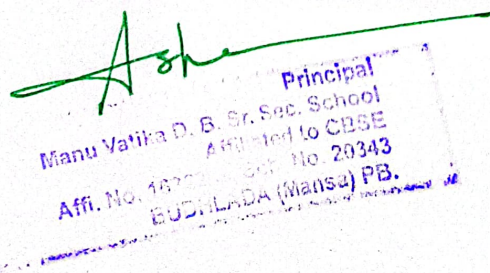 Ashe
Principal
Manu Vatika D. B. Sr. Sec. School
Affiliated to CBSE
Affi. No. Sch. No. 20343
BUDHLADA (Mansa) PB.